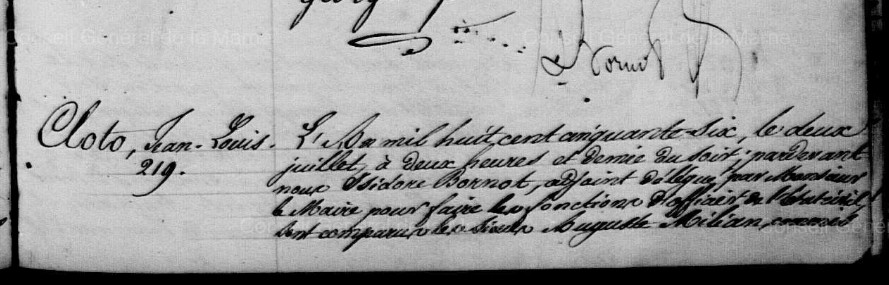 Conseil Général de la Marne
Conseil Général de la Marne
Bornot
Cloto, Jean-Louis.
219.
L'An mil huit cent cinquante-six, le deux
juillet, à deux heures et demie du soir; pardevant
nous Isidore Bornot, adjoint délégué par Monsieur
le Maire pour faire les fonctions d'officier de l'état civil,
sont comparus les sieurs Auguste Milian, commis